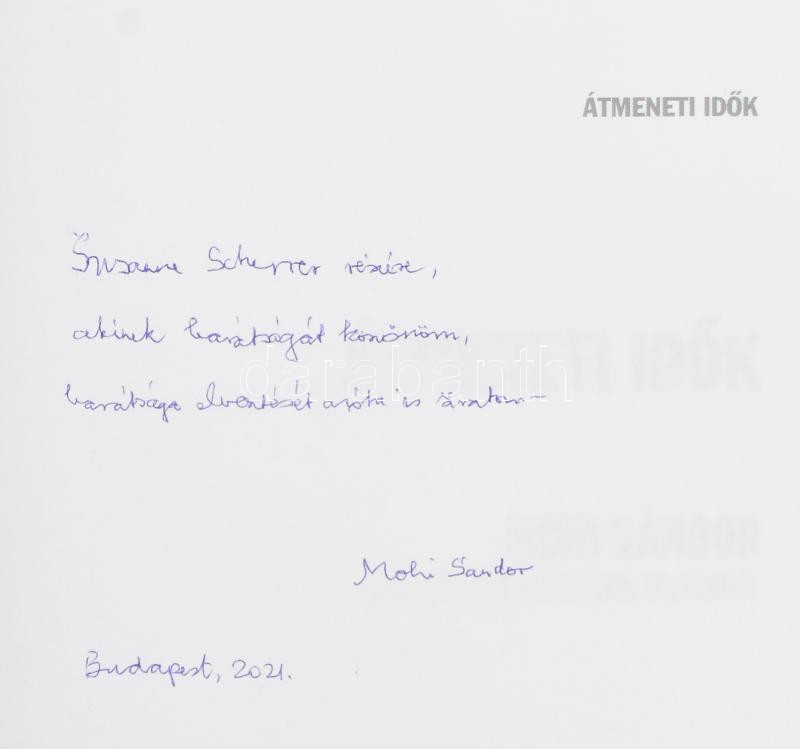 ÁTMENETI IDŐK
Susanne Scherrer részére,
akinek barátságát köszönöm,
darabanth
barátsága elvesztését azóta is siratom
Mohi Sándor
Budapest, 2021.